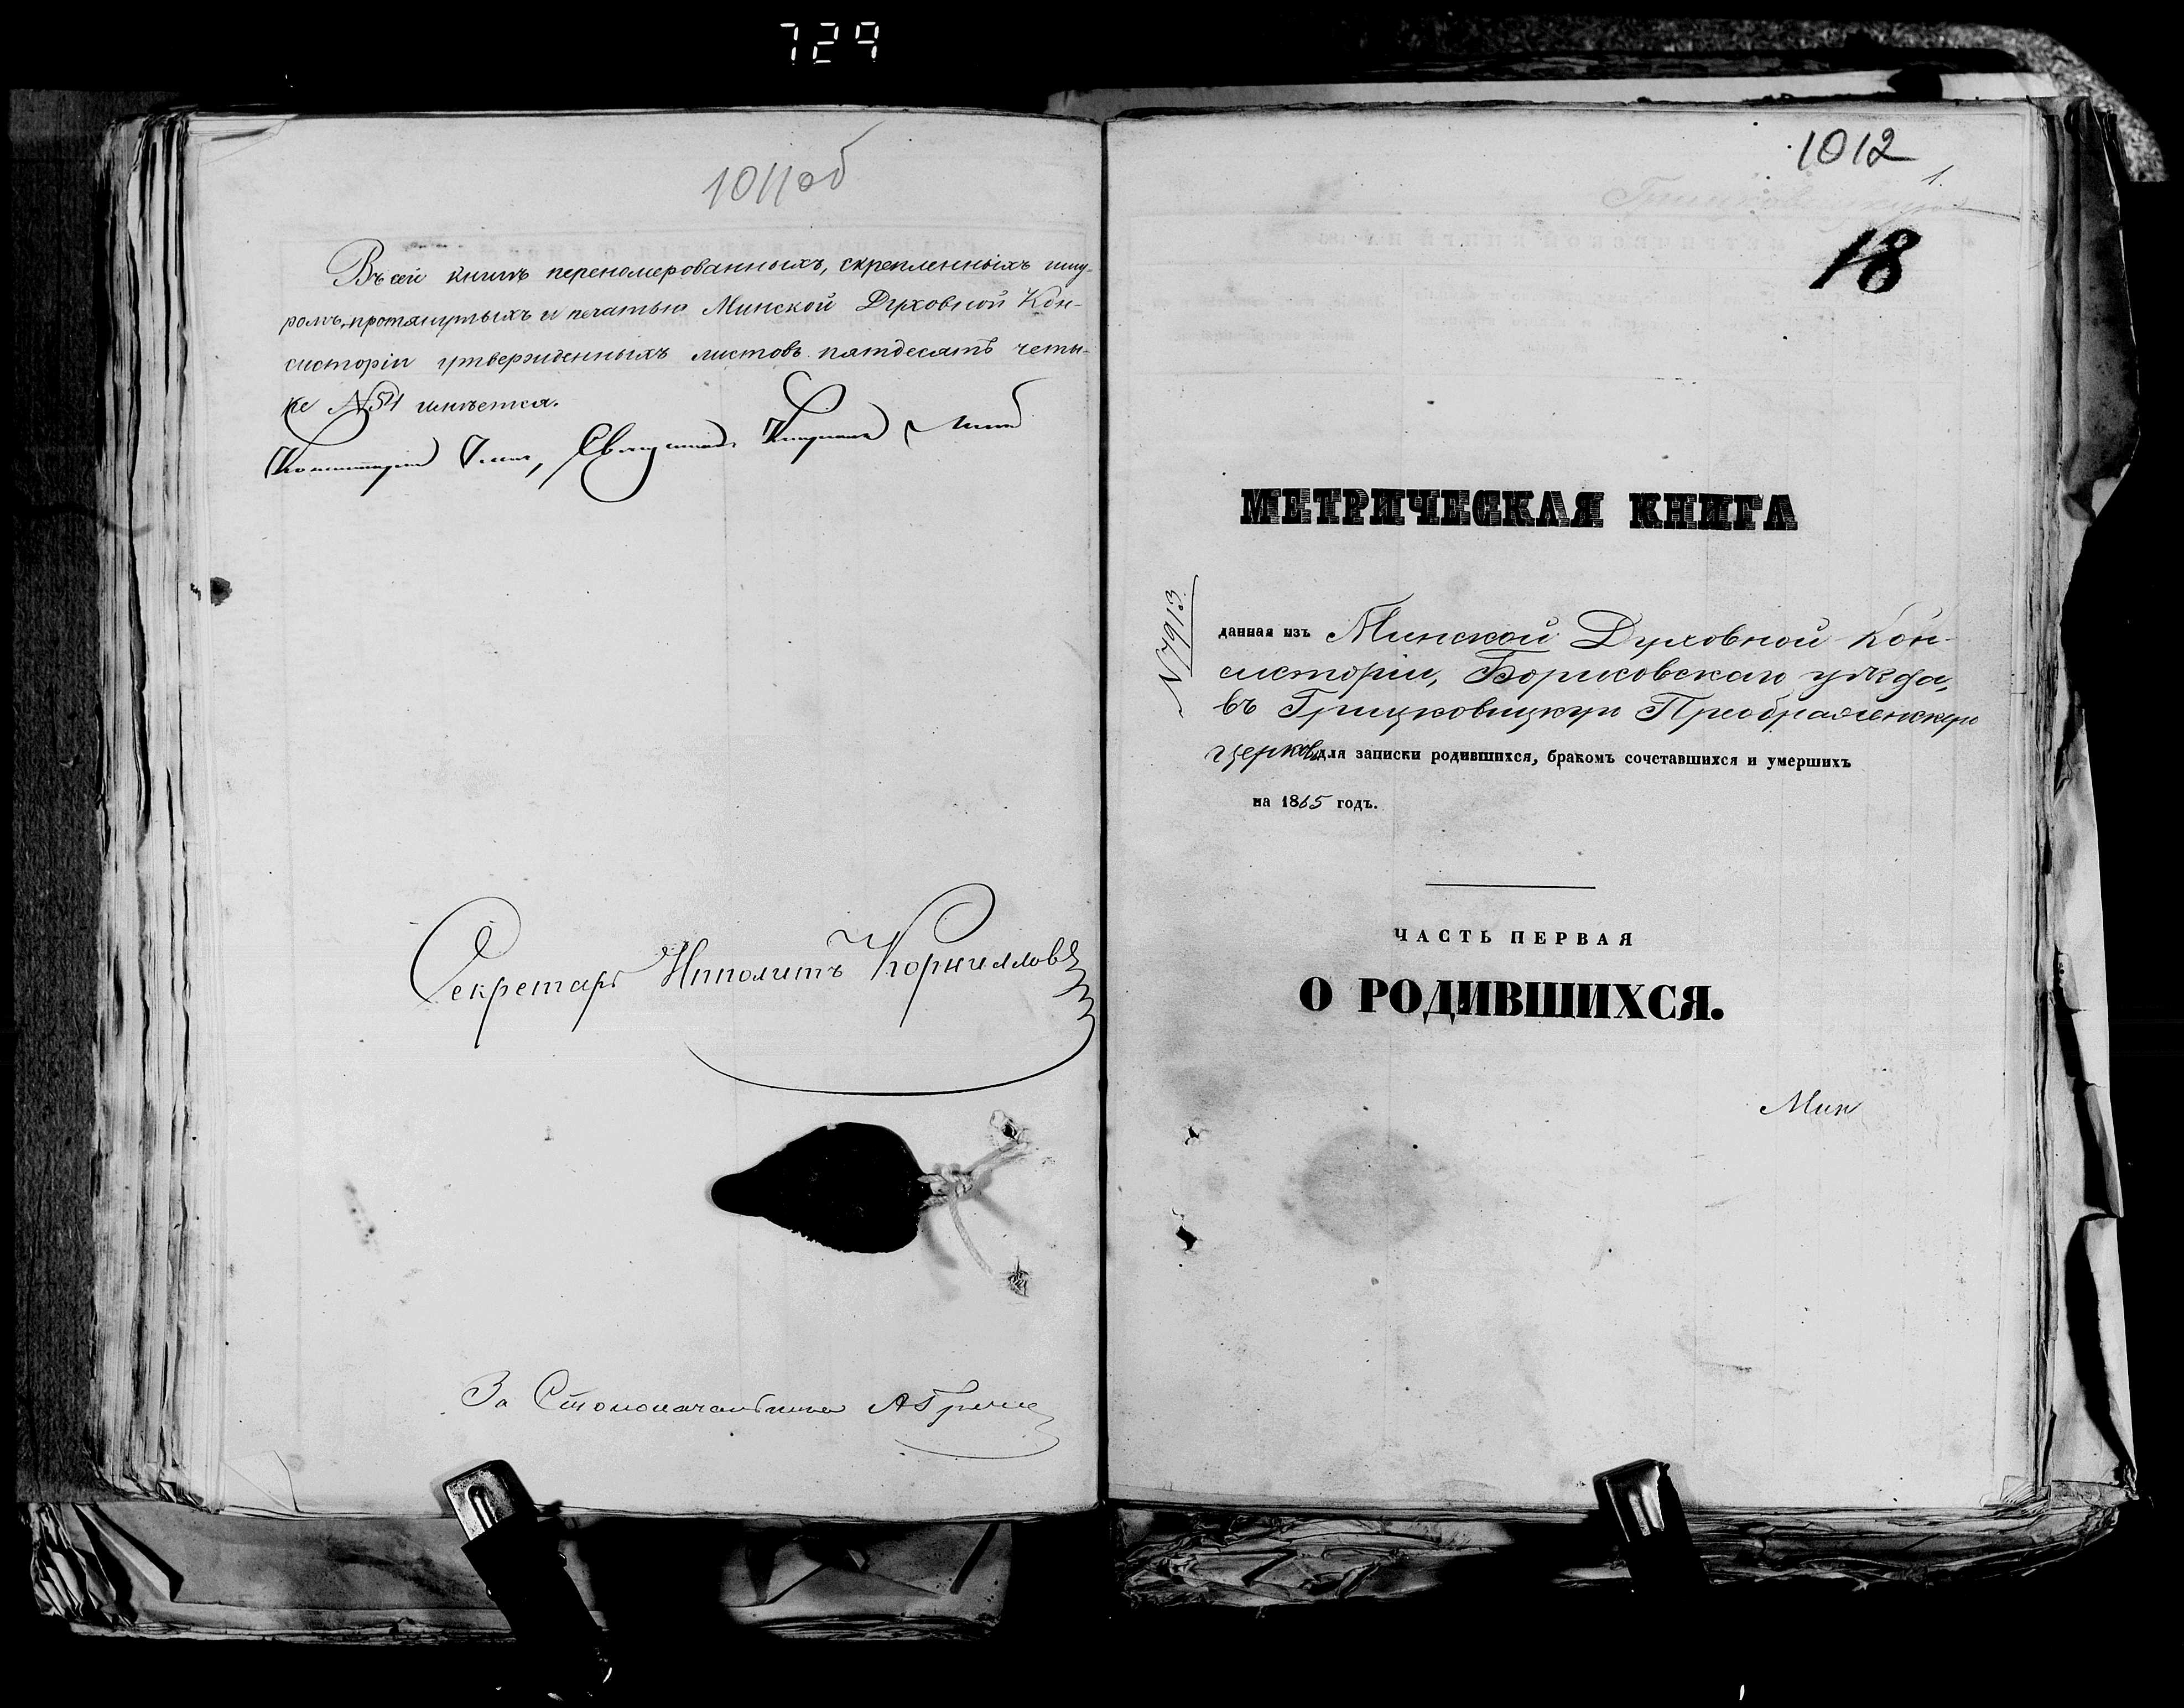 729
1011 об
Въ сей книгѣ переномерованныхъ, скрепленныхъ шну-
ромъ, протянутыхъ и печатью Минской Духовной Кон-
систоріи утвержденныхъ листовъ пятдесятъ четы-
ре №54 имѣется.
Консисторіи Членъ, Священникъ
Секретарь Ипполитъ Корниловъ
За Столоначальника
1012
1.
18
МЕТРИЧЕСКАЯ КНИГА
N 7913
данная изъ Минской Духовной Кон-
систоріи, Борисовскаго уѣзда,
въ Грицковицкую Преображенскую
церковь для записки родившихся, бракомъ сочетавшихся и умершихъ
на 1865 годъ.
ЧАСТЬ ПЕРВАЯ
О РОДИВШИХСЯ.
Мин